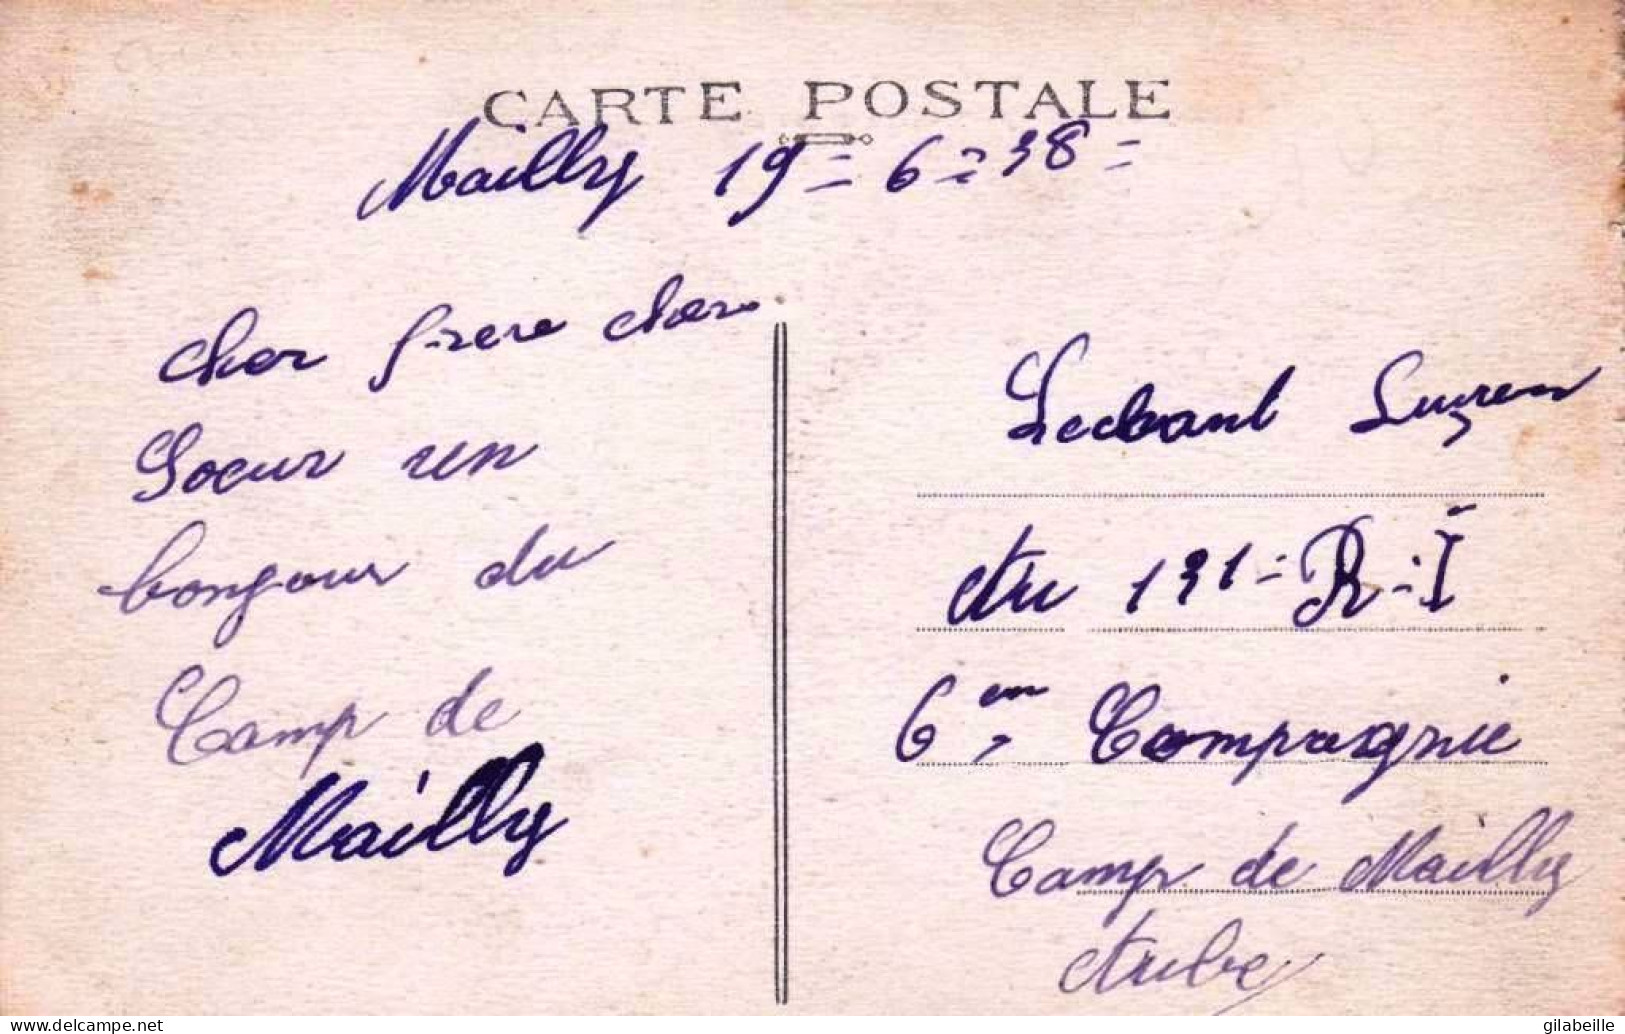 CARTE POSTALE
Mailly 19 = 6 = 38 =
cher frere chere
Soeur un
bonjour du
Camp de
Mailly
Lechant
Au 131 - R - I
6em Compagnie
Camp de Mailly
Aube
www.delcampe.net
gilabeille